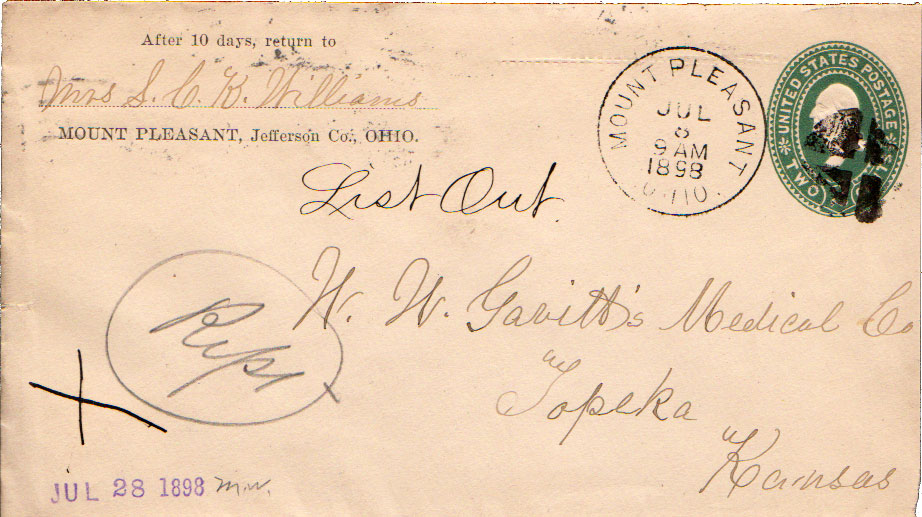 After 10 days, return to
Mrs S. C. K. Williams
MOUNT PLEASANT, Jefferson Co., OHIO.
MOUNT PLEASANT
JUL
8
9 AM
1898
OHIO.
UNITED STATES POSTAGE
TWO
List Out.
W. W. Gavitt's Medical Co
Topeka
Kansas
JUL 28 1898 m.w.